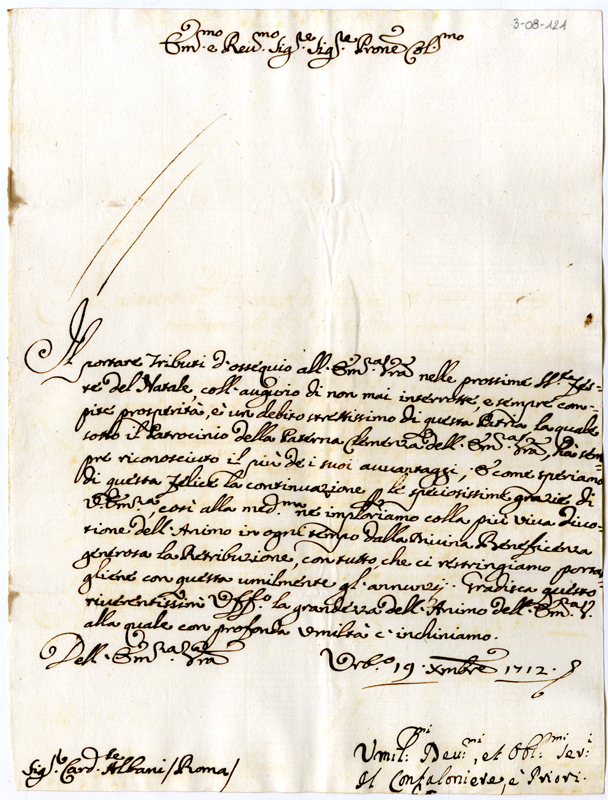 3-08-121
Em.mo e Reu.mo Sig.re Sig.re Prone Col.mo
Il portare tributi d'ossequio all'Em.za Vra nelle prossime S.te Fes=
te del Natale coll'augurio di non mai interrotte, e sempre com=
pite prosperità, è un debito strettissimo di questa Patria la quale
sotto il Patrocinio della Paterna Clemenza dell'Em.za Vra, hà sem=
pre riconosciuto il più de i suoi auuantaggi, E come speriamo
di questa felice la continuazione p le speciosissime grazie di
V. Em.za, così alla med.ma ne imploriamo colla più viua diuo=
tione dell'Animo in ogni tempo dalla Diuina Beneficenza
generosa la Retribuzione, con tutto che ci restringiamo portar
gliene con questa umilmente gl'annunzij. Gradisca questo
riuerentissimo Uff.o la grandezza dell'Animo dell'Em.za V.
alla quale con profonda umiltà c'inchiniamo.
Dell'Em.za Vra
Urb.o 19 Xmbre 1712.
Umil.mi Deu.mi, et Obl.mi Ser.i
Il Confaloniere, e Priori.
Sig.r Card.le Albani / Roma /